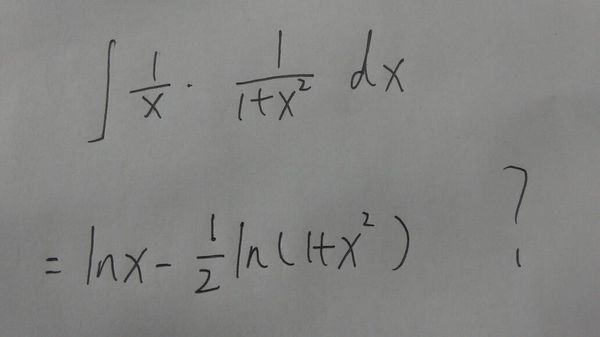 ∫ 1/x · 1/(1+x²) dx
= lnx - 1/2 ln(1+x²) ?